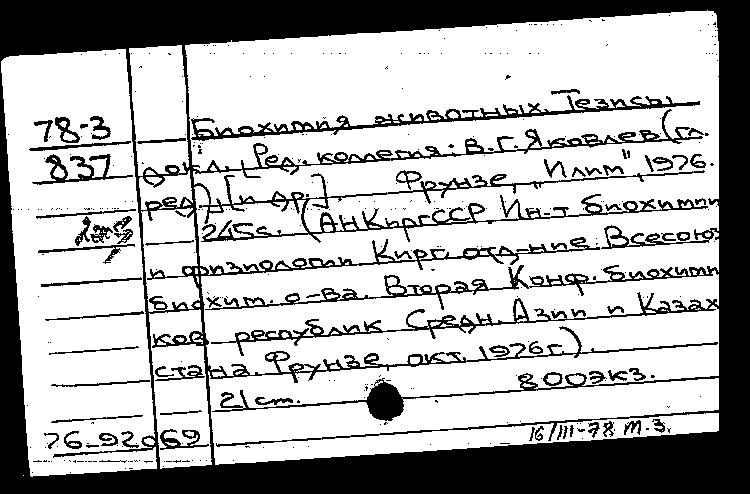 78-3 Биохимия животных. Тезисы
837 докл. [Ред. коллегия: В.Г. Яковлев (гл.
ред.), [и др.]. Фрунзе, "Илим", 1976.
245с. (АН КиргССР. Ин-т биохимии
и физиологии. Кирг. отд-ние Всесоюз.
биохим. о-ва. Вторая Конф. биохими
ков республик Средн. Азии и Казах
стана. Фрунзе, окт. 1976г.).
21 cm. 800экз.
76-92069
16/III-78 м.з.